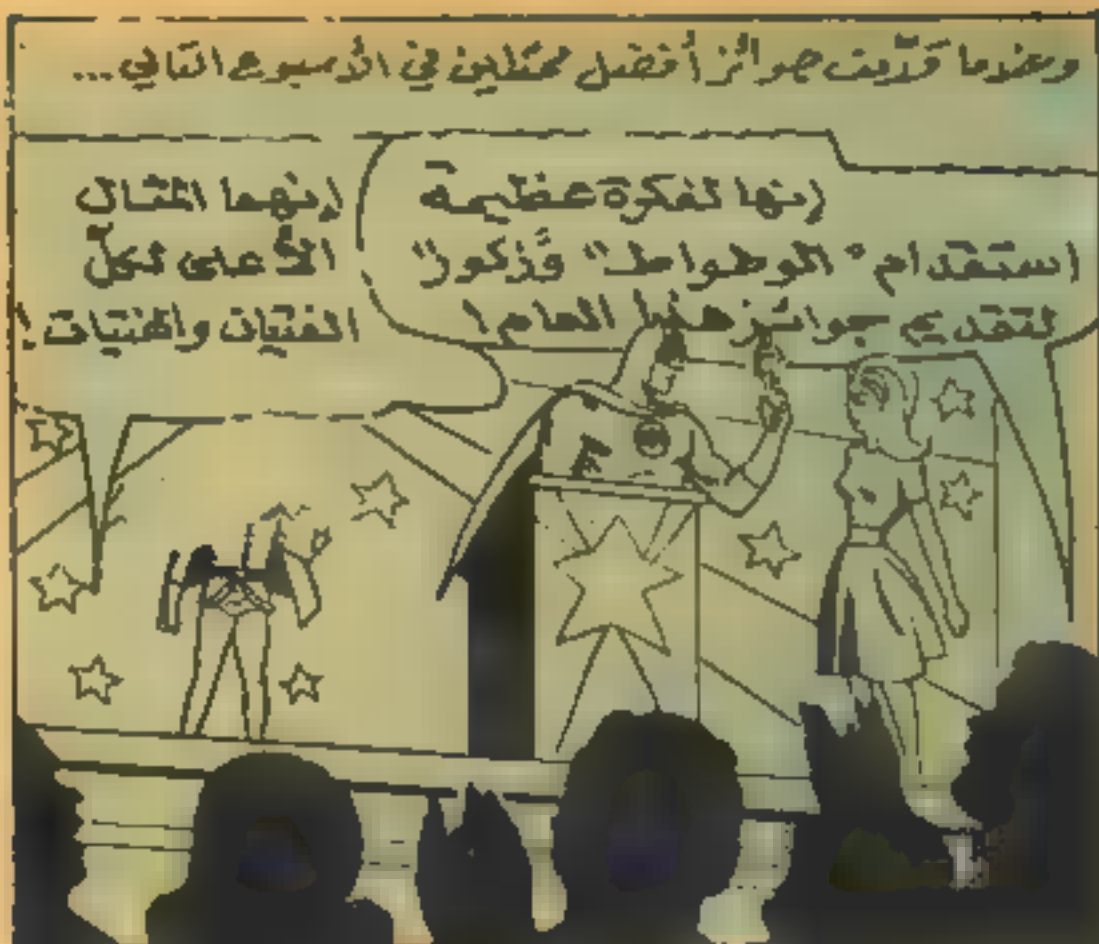 وعندما قدّمت جوائز أفضل ممثلين في الأسبوع التالي...
إنها لفكرة عظيمة
استقدام "الوطواط" و"زكور"
لتقديم جوائز هذا العام!
إنهما المثال
الأعلى لكلّ
الفتيان والفتيات!